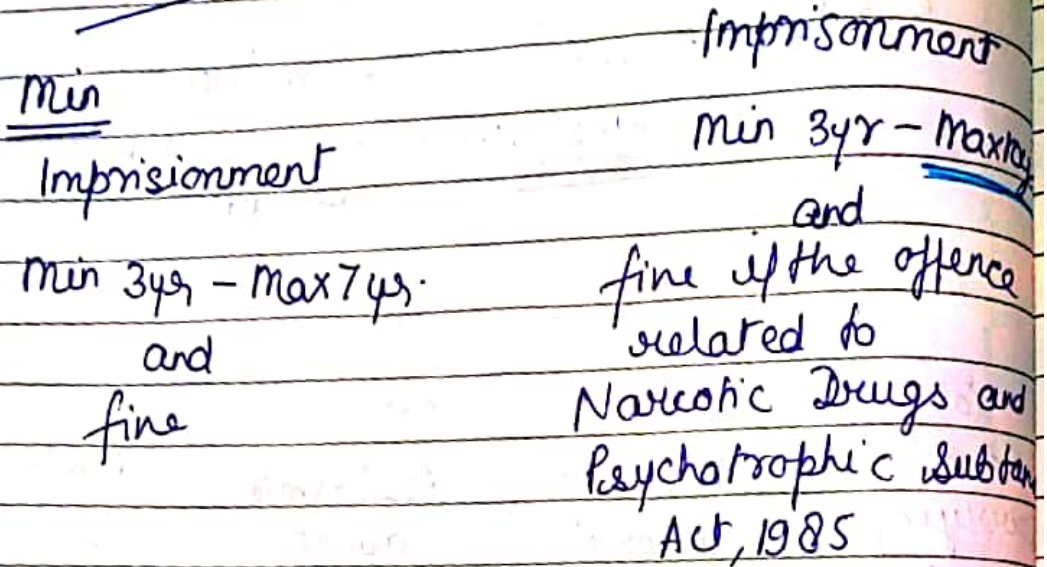 Min
Imprisionment
Min 3yr - Max 7 yr.
and
fine
Imprisonment
Min 3yr - Max
and
fine if the offence
related to
Narcotic Drugs and
Psychotrophic
Act, 1985